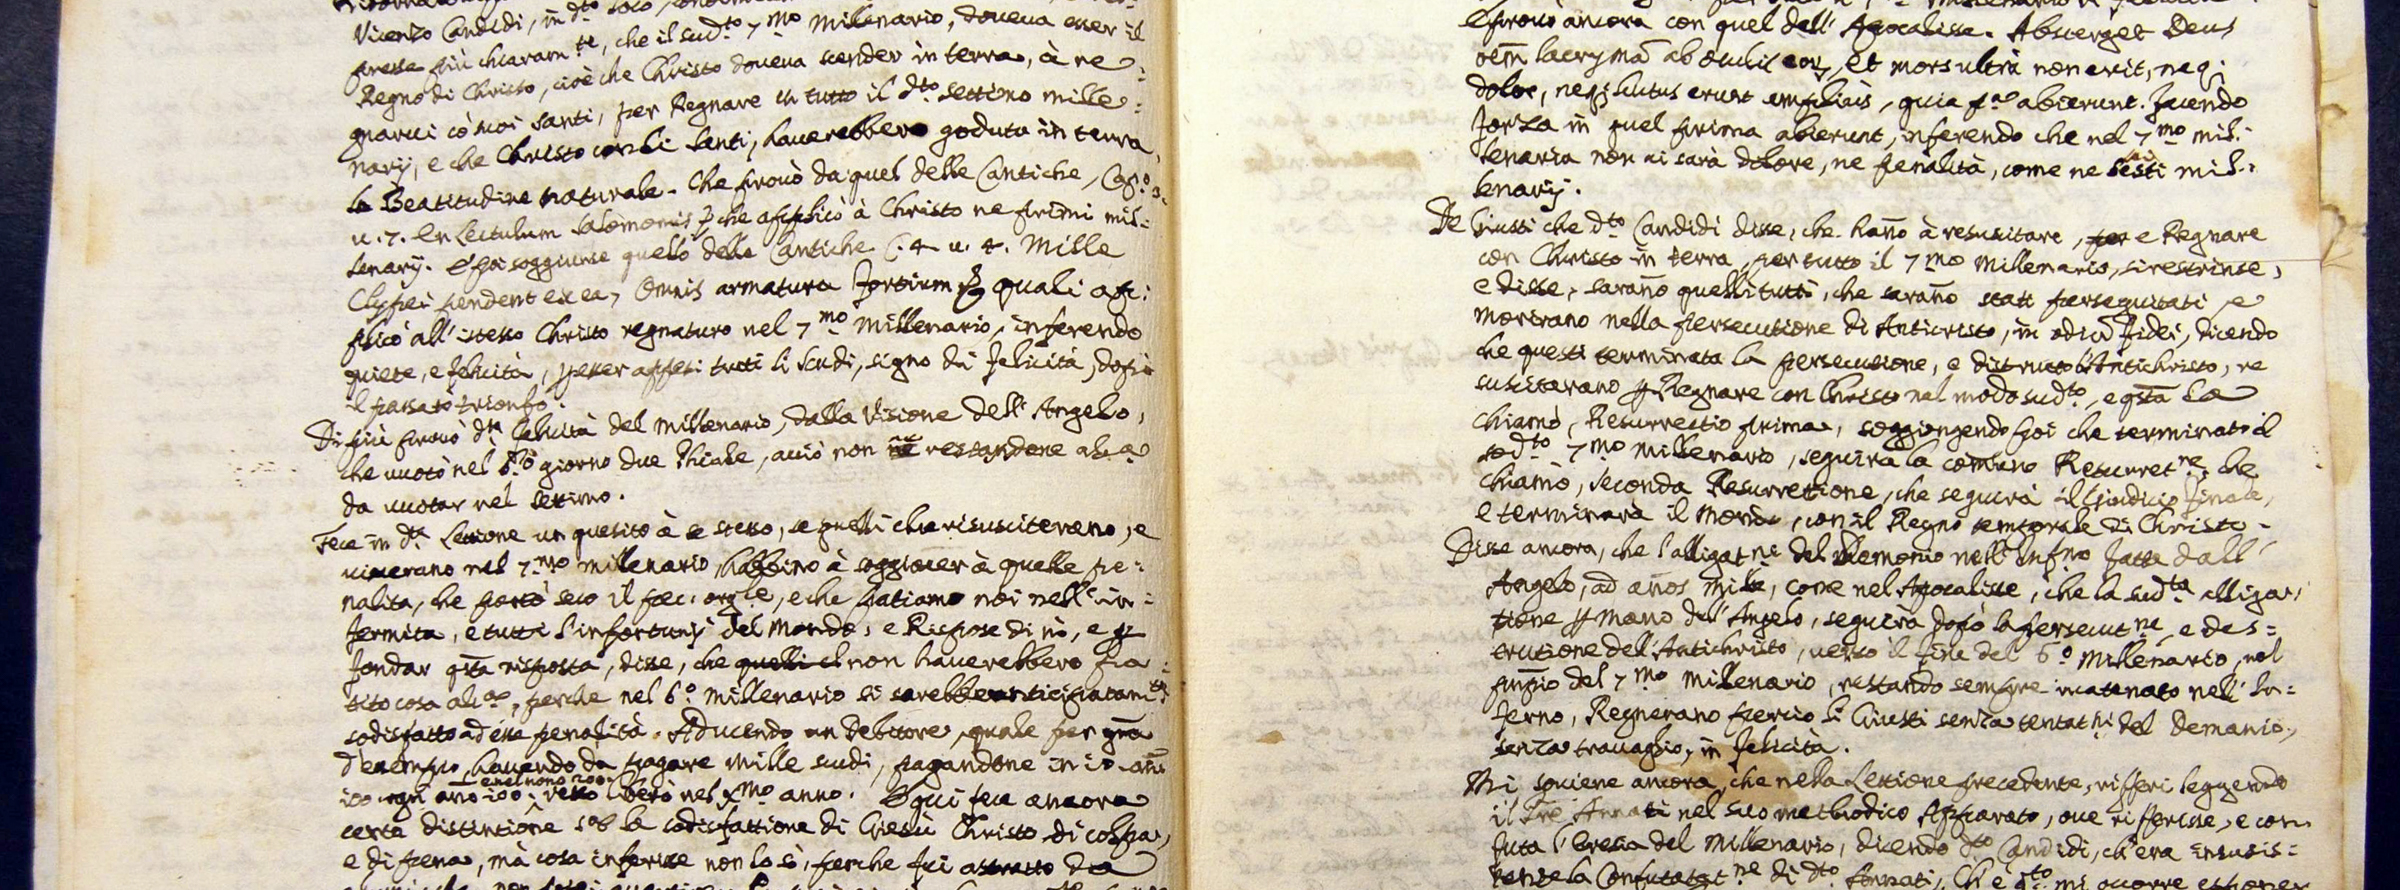 Vicenzo Candidi, in dto loco,
presse più chiaramte, che il sudto 7mo Millenario, doueua esser il
Regno di Christo, cioè che Christo doueua scender in terra, à re:
gnarui có suoi santi, per Regnare in tutto il dto settimo mille:
nary, e che Christo con li Santi, hauerebbero goduta in terra,
la Beatitudine naturale. Che prouò da quel delle Cantiche, Capo 3.
u. 7. En Lectulum Salomonis, che applicò à Christo ne primi mil:
lenary. E poi soggiunse quello delle Cantiche C. 4. u. 4. Mille
Clypei pendent ex ea, Omnis armatura fortium quali ap:
plicò all' istesso Christo regnaturo nel 7mo Millenario, inferendo
quiete, e felicità, p esser appesi tutti li Scudi, signo di felicità, dopò
il passato trionfo.
Di più prouò dta felicità del millenario, dalla Visione dell' Angelo,
che uuotò nel 6to giorno due Phiale, acciò non ne restandone alca
da uuotar nel settimo.
Fece in dta Lettione un quesito à se stesso, se quelli che risusciterano, e
uiuerano nel 7mo millenario habbino à soggiacer à quelle pe:
nalità, che portò seco il pec: orgle, e che patiamo noi nell' in:
fermita, e tutti l'infortunij del Mondo, e Rispose di nò, e p
fondar qsta risposta, disse, che quelli ch non hauerebbero pa:
tito cosa alca, perche nel 6o millenario si sarebbe anticipatamte
sodisfatto ad essa penalità. Aducendo un Debitore, quale per gra
d'esempio, hauendo da pagare mille scudi, pagandone in 10 anni
100 ogni ano 100, e nel nono 200 resta libero nel xmo anno. E qui fece ancora
certa distintione sob la sodisfattione di Giesù Christo di colpa,
e di pena, mà cosa inferise non lo sò, perche fui astratto da
e prouò ancora con quel dell' Apocalisse. Absterget Deus
oem lacryma ab oculis eoz, et mors ultra non erit, neq;
dolor, neq; luctus erunt amplius, quia pa abierunt. facendo
forza in quel prima abierunt, inferendo che nel 7mo mil:
lenario non ui sarà dolore, ne penalità, come ne sesti mil:
lenarij.
De Giusti che dto Candidi disse, che hano à resuscitare, per e Regnare
con Christo in terra, per tutto il 7mo Millenario, si restrinse,
e disse, sarano quelli tutti, che sarano stati perseguitati, e
morirano nella persecutione di Anticristo, in odiu fidei, dicendo
che questi terminata la persecutione, e distrutto l'Antichristo, re
suscitarano p Regnare con Christo nel modo sudto, e qsta la
chiamò, Resurrectio prima, soggiongendo poi che terminato il
sodto 7mo millenario, seguirà la comune Resurretne, che
chiamò, seconda Resurrettione, che seguirà il Giudicio finale,
e terminarà il Mondo, con il Regno temporale di Christo.
Disse ancora, che l'alligatne del Demonio nell' Infno fatta dall'
Angelo, ad anos mille, come nel Apocalisse, che la sudta alliga:
tione p mano dell' Angelo, seguirà dopò la persecutne, e des=
trutione dell' Antichristo, uerso il fine del 6o Millenario, nel
prnpio del 7mo Millenario, restando sempre incatenato nell' In=
ferno, Regnerano perciò li Giusti senza tentatni del Demonio,
senza trauaglio, in felicità.
Mi souiene ancora, che nella Lettione precedente, rifferì leggendo
il Pre Annati nel suo methodico Apparato, oue rifferisse, e con:
futa l'eresia del Millenario, dicendo dto Candidi, ch'era insusis=
tente la Confutatne di dto Annati,